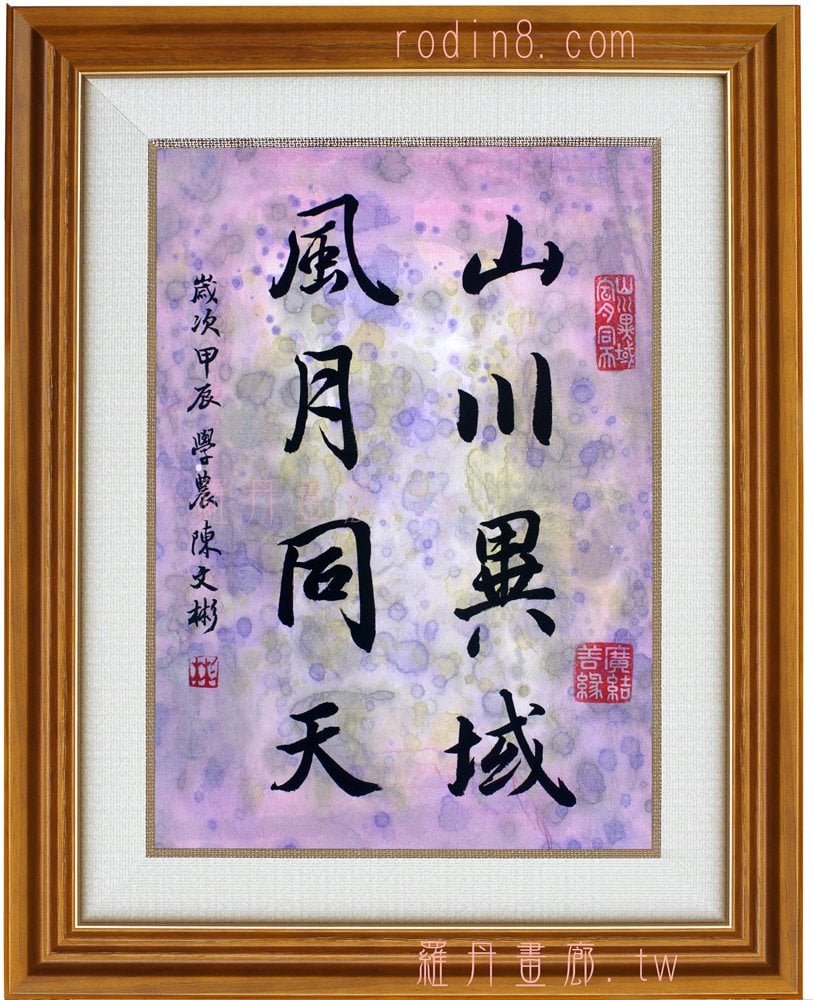 rodin8.com
山川異域
風月同天
歲次甲辰 學農陳文彬
山川異域
風月同天
廣結
善緣
彬
羅丹畫廊
羅丹畫廊.tw